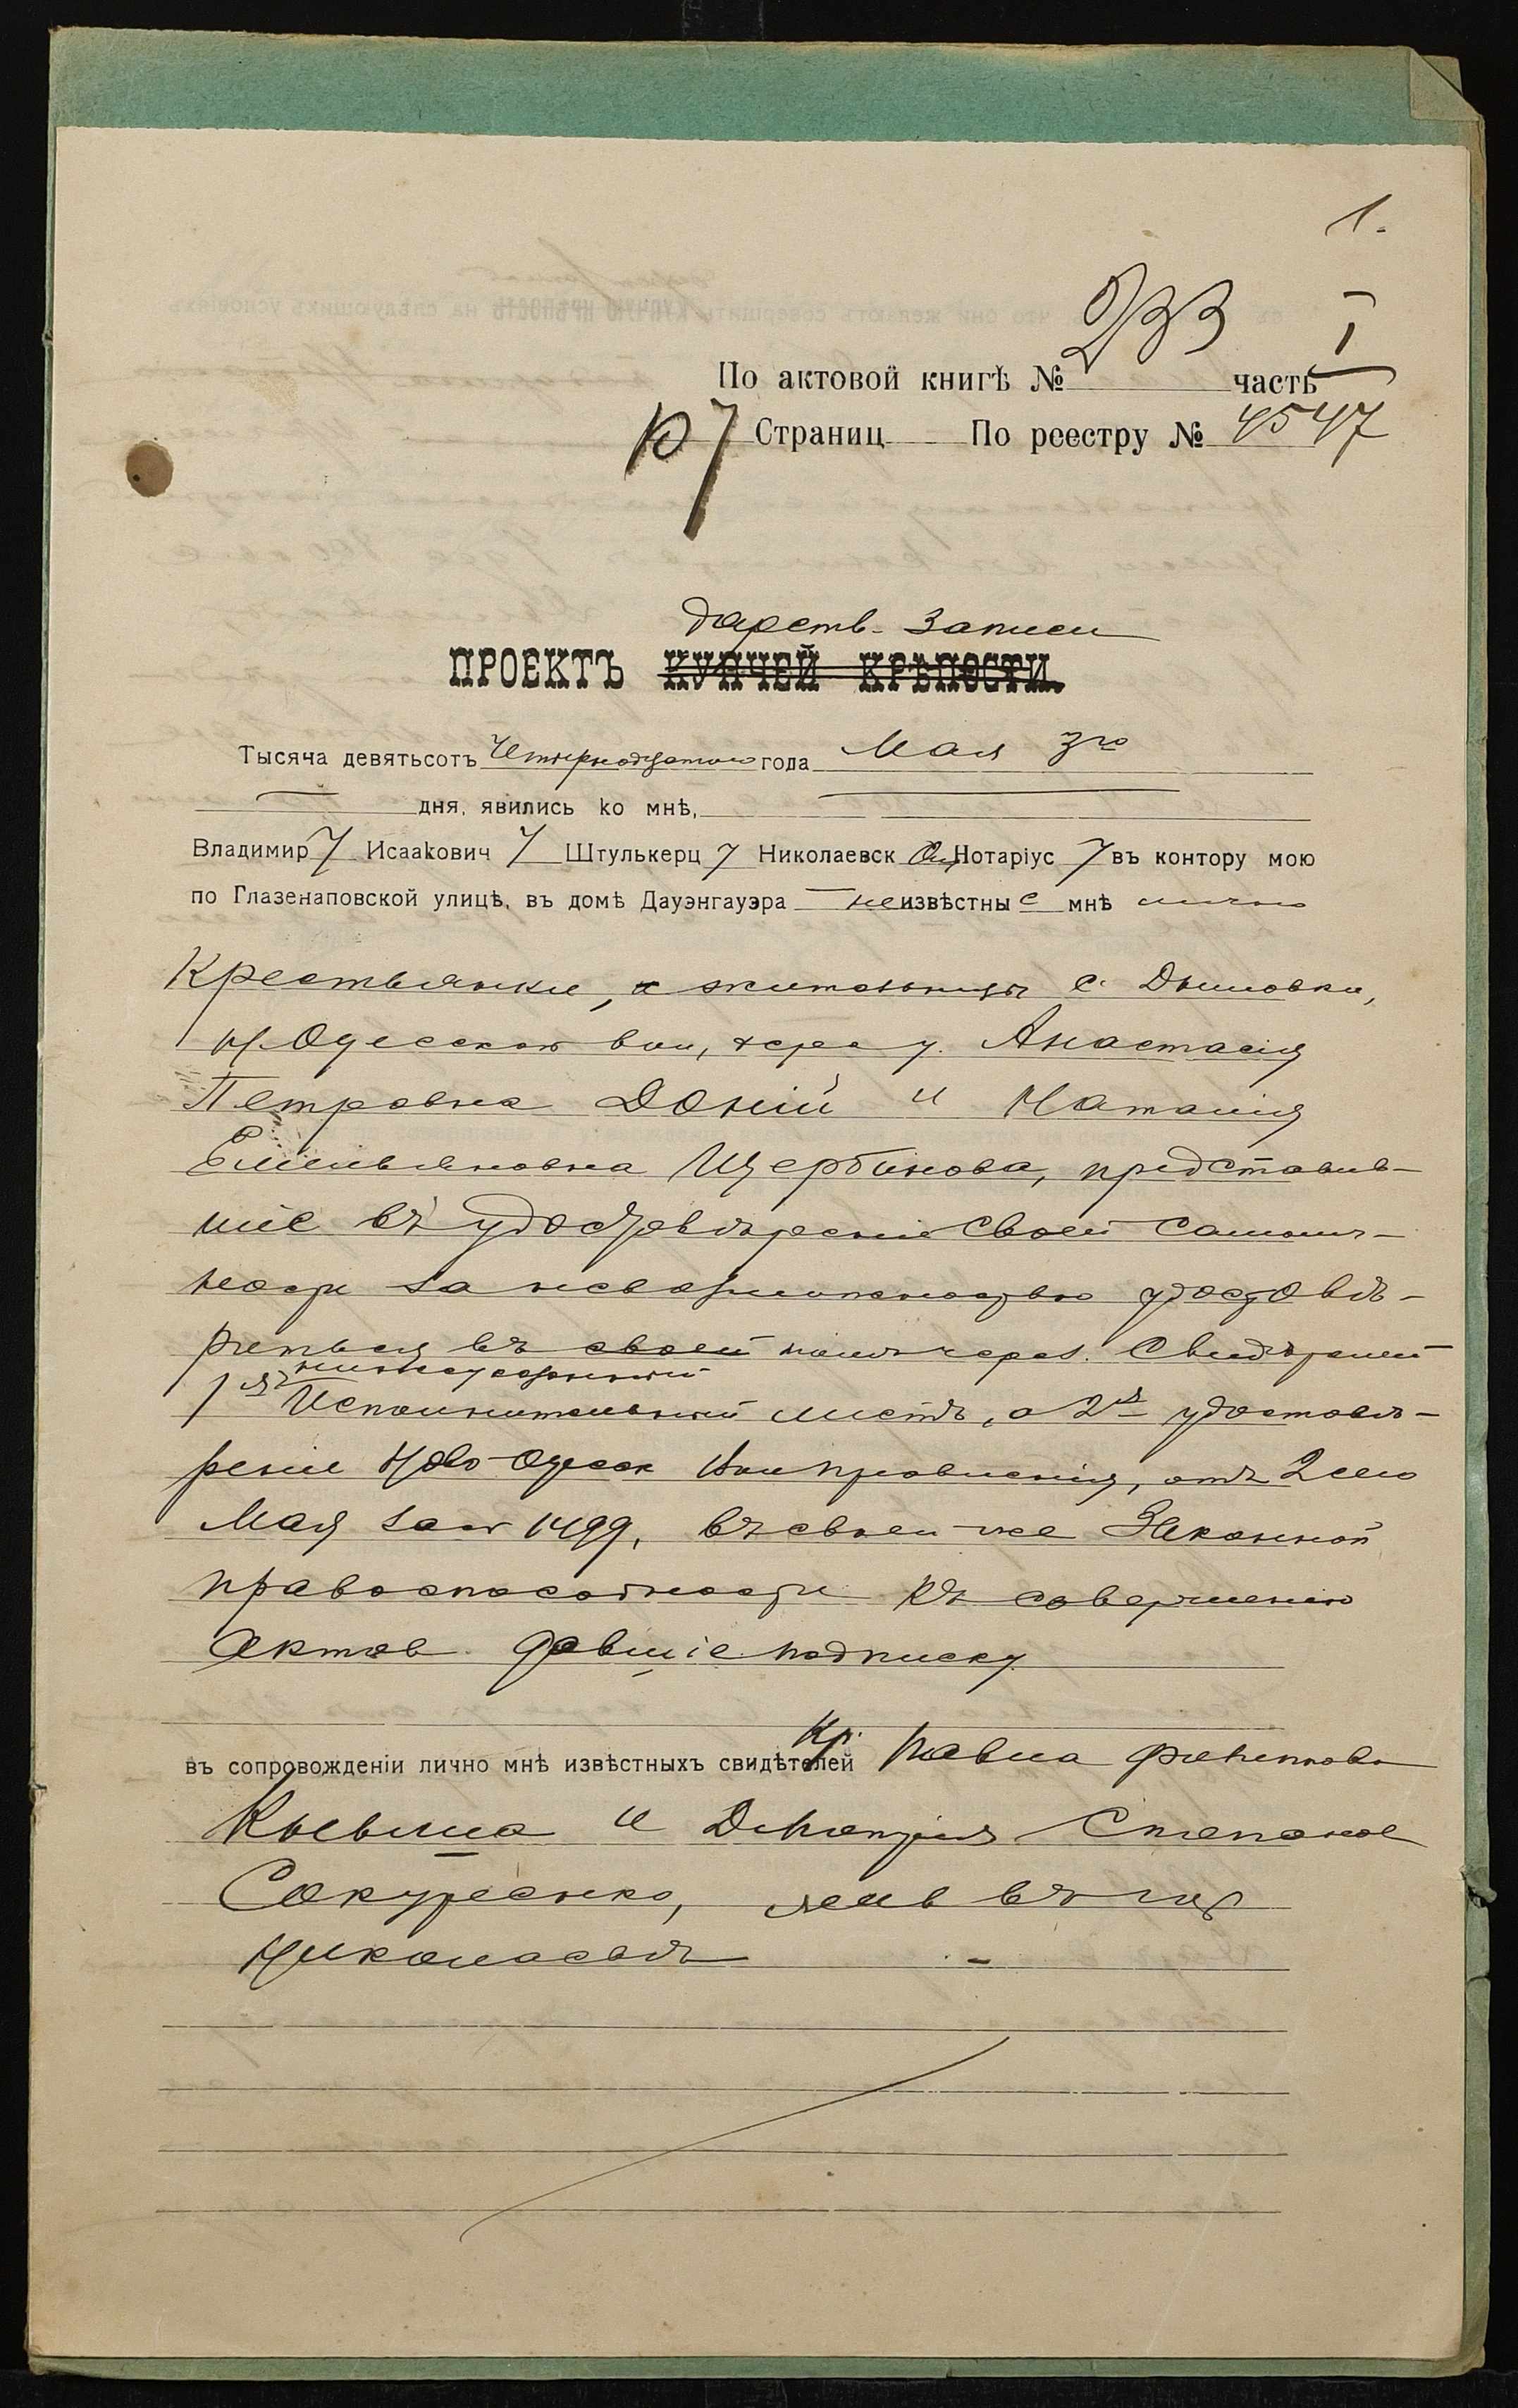 1.
По актовой книгѣ № 233 часть I
107 Страниц По реестру № 4547
дарств. записи
ПРОЕКТЪ КУПЧЕЙ КРѢПОСТИ.
Тысяча девятьсотъ Четырнадцатого года Мая 3го
дня, явились ко мнѣ,
Владимир у Исаакович у Штулькерц у Николаевск ому Нотаріус у въ контору мою
по Глазенаповской улицѣ, въ домѣ Дауэнгауэра неизвѣстны е мнѣ лично
Крестьянки, жительницы с. Дымовки,
Н. Одесской вол, Херс у. Анастасія
Петровна Доній и Наталія
Емельяновна Щербинова, представив-
шіе въ удостовѣреніе своей самолич-
ности за невозможностью удостовѣ-
риться въ своей чрез. Свидѣтелей
1я
Исполнительный листъ, а 2я удостовѣ-
реніе Ново-Одесск Вол Правленія, отъ 2 сего
Мая за № 1499, въ своей-же Законной
правоспособности къ совершенію
Актов давшіе подписку
въ сопровожденіи лично мнѣ извѣстныхъ свидѣтелей Кр. Павла
и Дмитрія Степанов
Сокуренко, жив въ гор
Николаевѣ